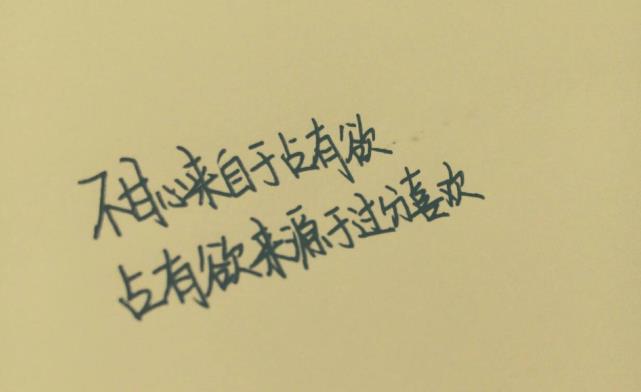 不甘心来自于占有欲
占有欲来源于过分喜欢